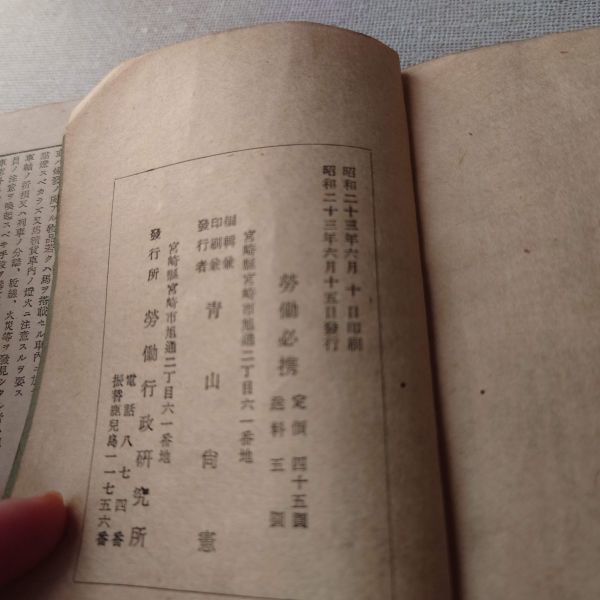 昭和二十三年六月 十日印刷
昭和二十三年六月十五日發行
勞働必携
定價 四十五圓
送料 五圓
宮崎縣宮崎市旭通二丁目六一番地
編輯兼
印刷兼
發行者
青山尙憲
宮崎縣宮崎市旭通二丁目六一番地
發行所 勞働行政硏究所
電話八七四番
振替鹿兒島一一七五六番
車軸ノ折損又ハ列車ノ分離、脫線、火災等ヲ發見シタル